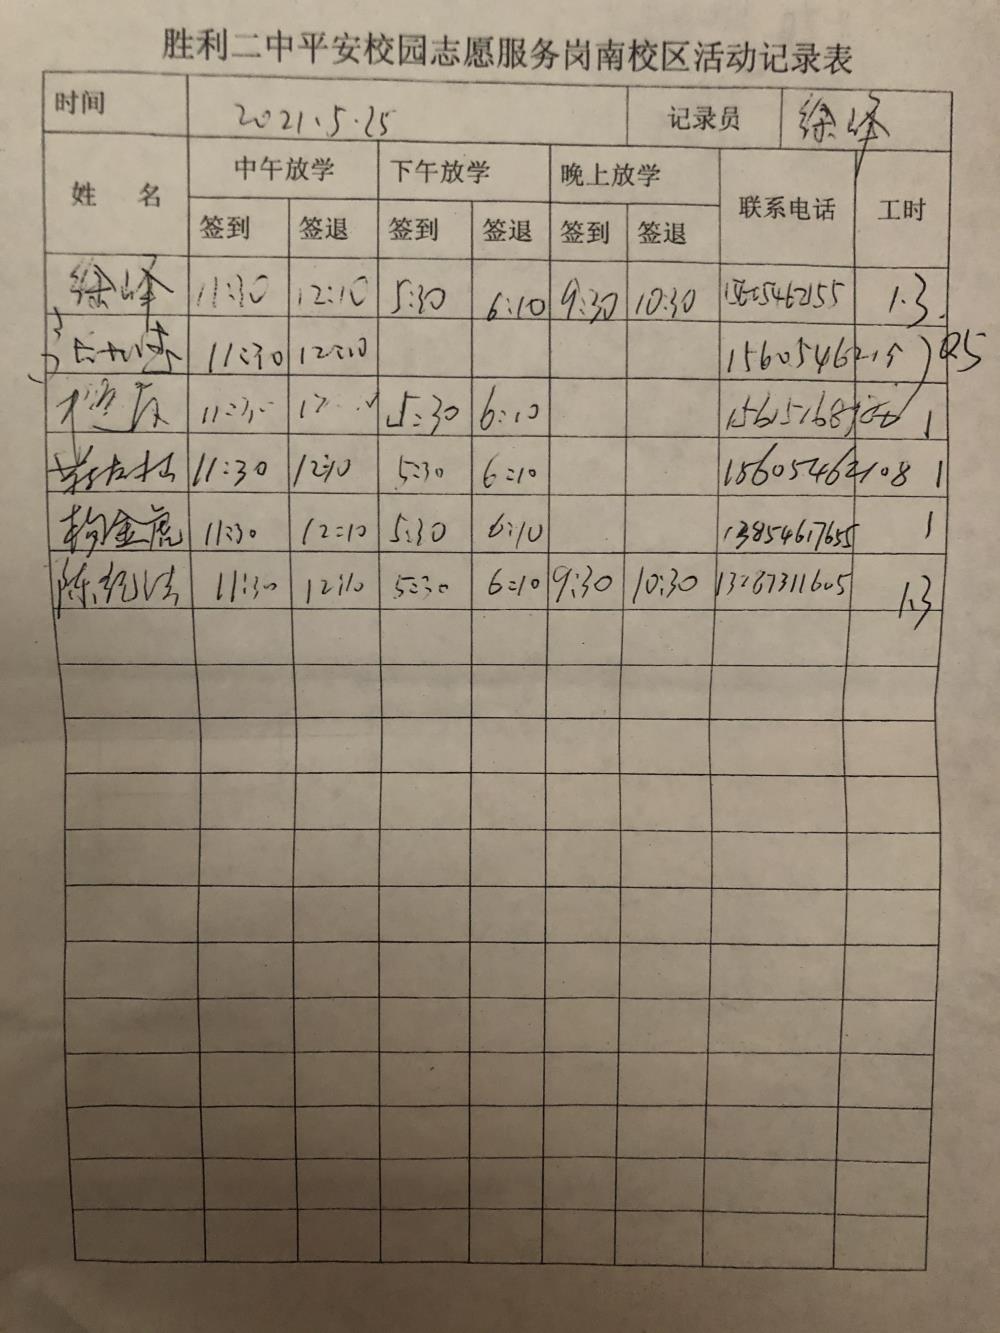 胜利二中平安校园志愿服务岗南校区活动记录表
时间 2021.5.25 记录员 徐峰
姓 名 中午放学 下午放学 晚上放学 联系电话 工时
签到 签退 签到 签退 签到 签退
徐峰 11:30 12:10 5:30 6:10 9:30 10:30 15605462155 1.3
11:30 12:10 0.5
5:30 6:10 1
11:30 12:10 5:30 6:10 15605462108 1
金虎 11:30 12:10 5:30 6:10 13854617655 1
陈 11:30 12:10 5:30 6:10 9:30 10:30 13287311605 1.3